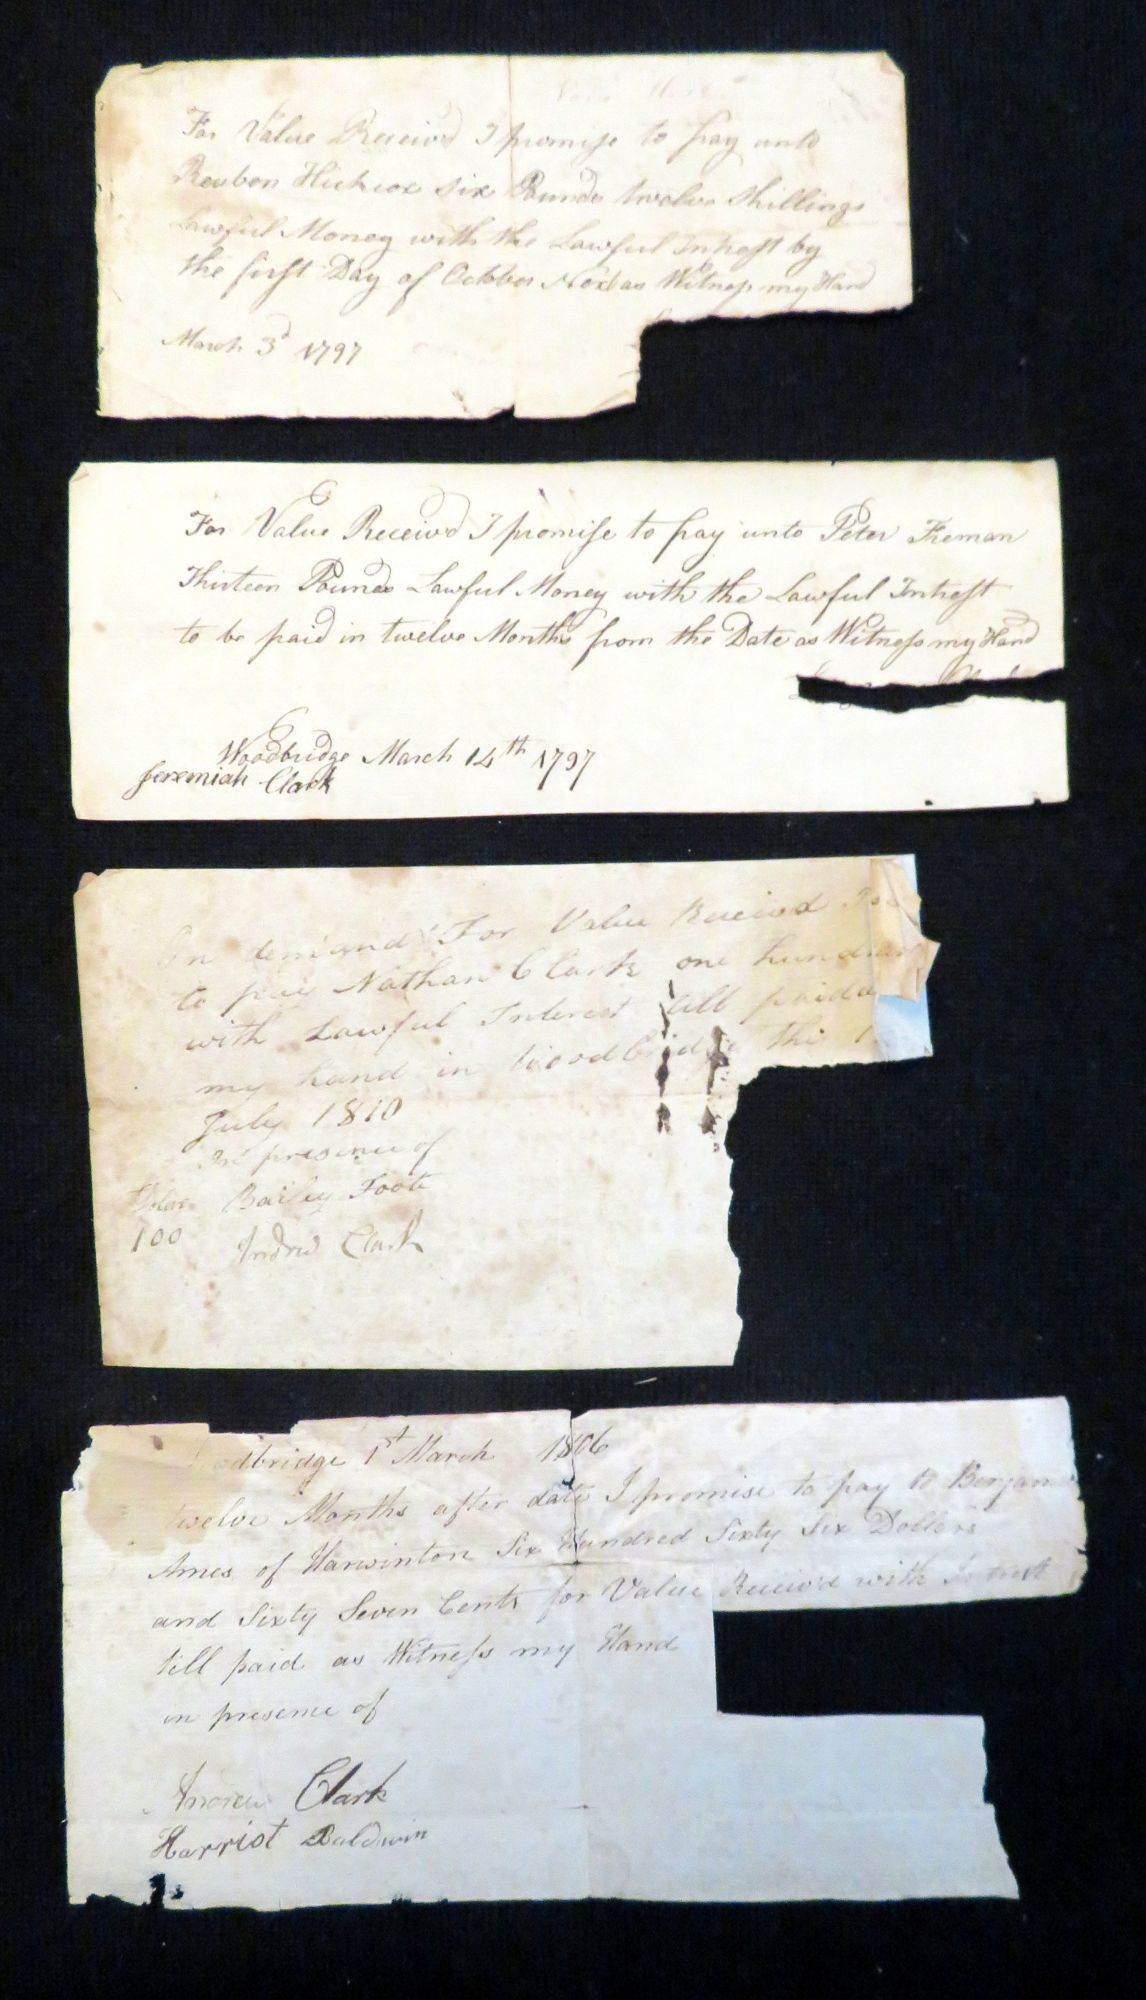 For Value Receivd I promise to pay unto
Reubon Hickcox six Pounds twelve Shillings
Lawful Money with the Lawful Intrest by
the first Day of Octobor Next as Witness my Hand
March 3d 1797
For Value Receivd I promise to pay unto Peter Freman
Thirteen Pounds Lawful Money with the Lawful Intrest
to be paid in twelve Months from the Date as Witness my Hand
Woodbridge March 14th 1797
Jeremiah Clark
On demand For Value Receivd
to pay Nathan Clark one hundred
with Lawful Interest till paid
my hand in Woodbridge this
July 1810
In presence of
Bailey Foote
100
Andrw Clark
dbridge 1st March 1806
twelve Months after date I promise to pay to Benjam
Ames of Harwinton Six Hundred Sixty Six Dollers
and Sixty Seven Cents for Value Receiv'd with Intrest
till paid as Witness my Hand
in presence of
Andrew Clark
Harriot Baldwin